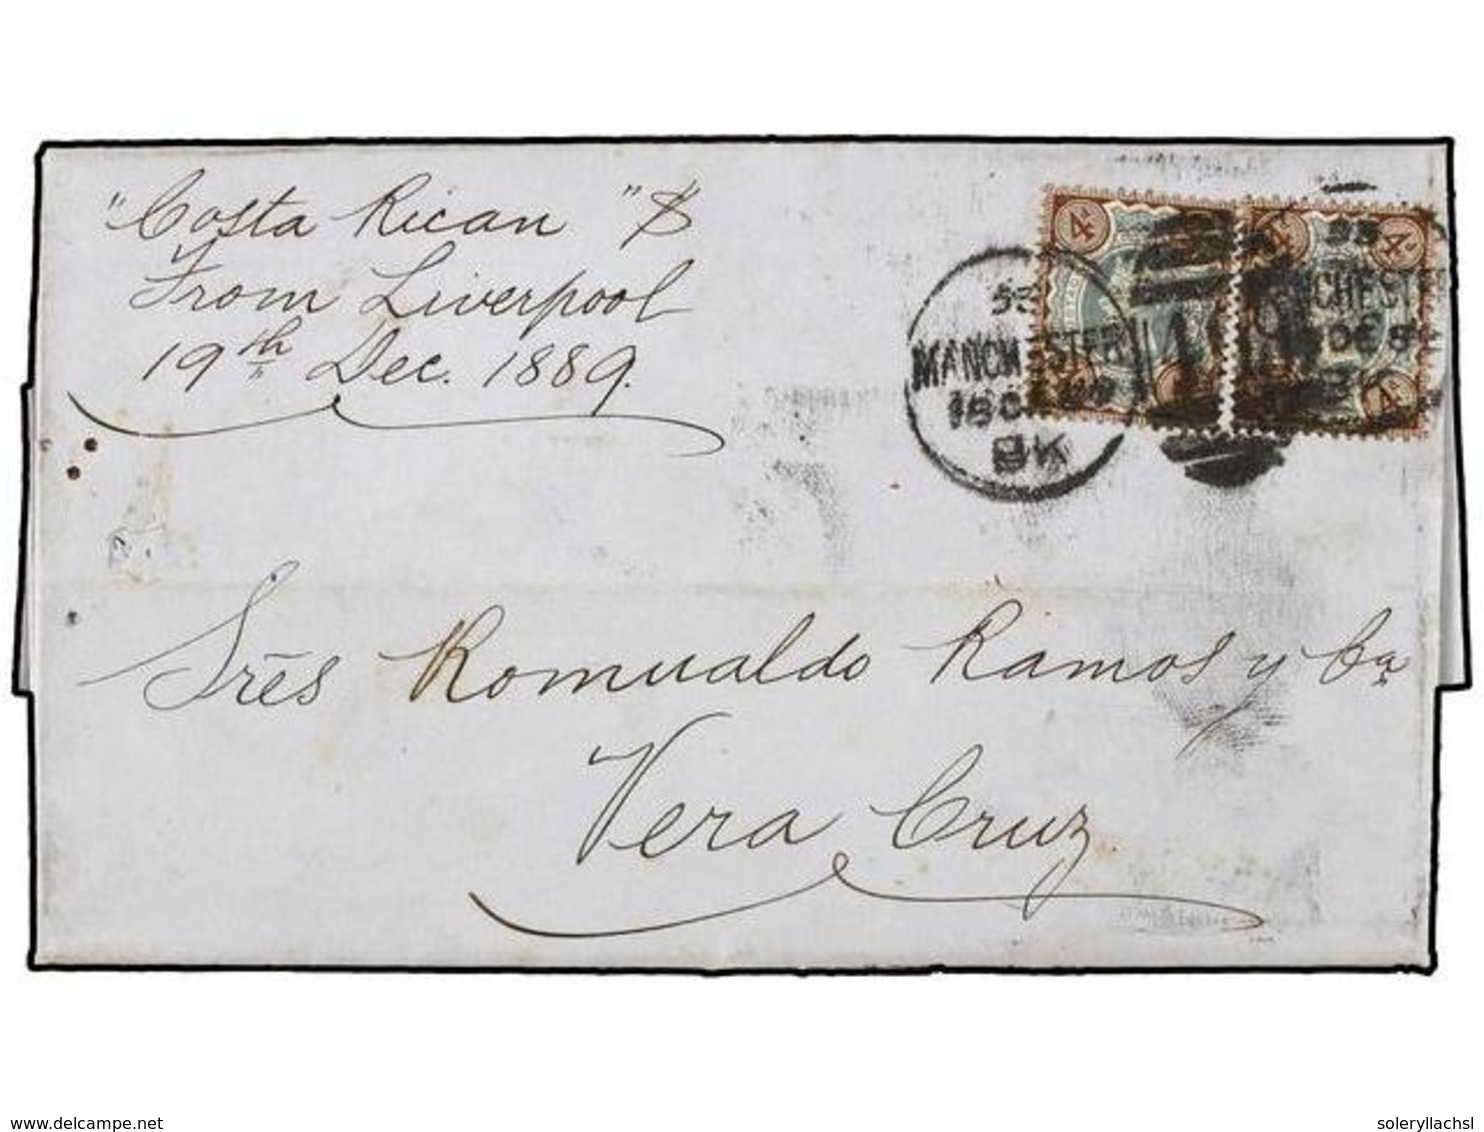 "Costa Rican" S
From Liverpool
19th Dec. 1889.
4d 4d 4d
53
MANCHESTER
MANCHESTER
18 DE
9 K
Srēs Romualdo Ramos y Ca
Vera Cruz
www.delcampe.net
soleryllachsl